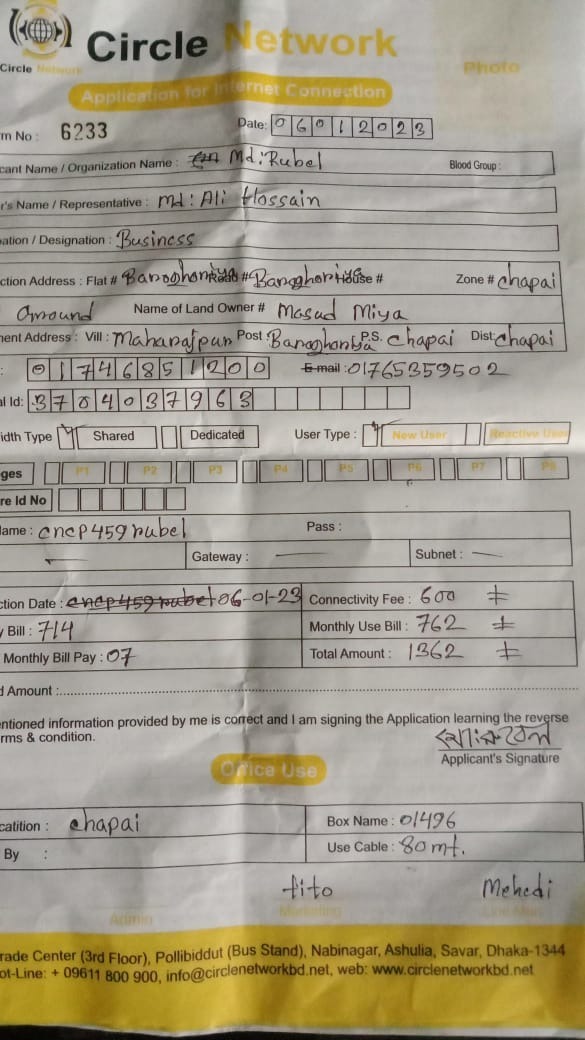 Circle Network
Circle Network
Photo
Application for Internet Connection
rm No : 6233 Date: 06012023
cant Name / Organization Name : Md:Rubel Blood Group :
r's Name / Representative : md: Ali Hossain
ation / Designation : Business
ction Address : Flat # Road # House # Zone # chapai
Name of Land Owner # Masud Miya
nent Address : Vill : Maharajpur Post : P.S. chapai Dist: chapai
: 01746851200 E-mail : 01765359502
al Id: 3704037963
idth Type Shared Dedicated User Type : New User Reactive User
ges P1 P2 P3 P4 P5 P6 P7 P8
re Id No
ame : cncp459rubel Pass :
Gateway : Subnet :
ction Date : cncp459rubel 06-01-23 Connectivity Fee : 600
y Bill : 714 Monthly Use Bill : 762
Monthly Bill Pay : 07 Total Amount : 1362
d Amount :
entioned information provided by me is correct and I am signing the Application learning the reverse
rms & condition.
Applicant's Signature
Office Use
catition : chapai Box Name : 01496
By : Use Cable : 80 mt.
tito Mehedi
Admin Marketing Line Man
rade Center (3rd Floor), Pollibiddut (Bus Stand), Nabinagar, Ashulia, Savar, Dhaka-1344
ot-Line: + 09611 800 900, info@circlenetworkbd.net, web: www.circlenetworkbd.net